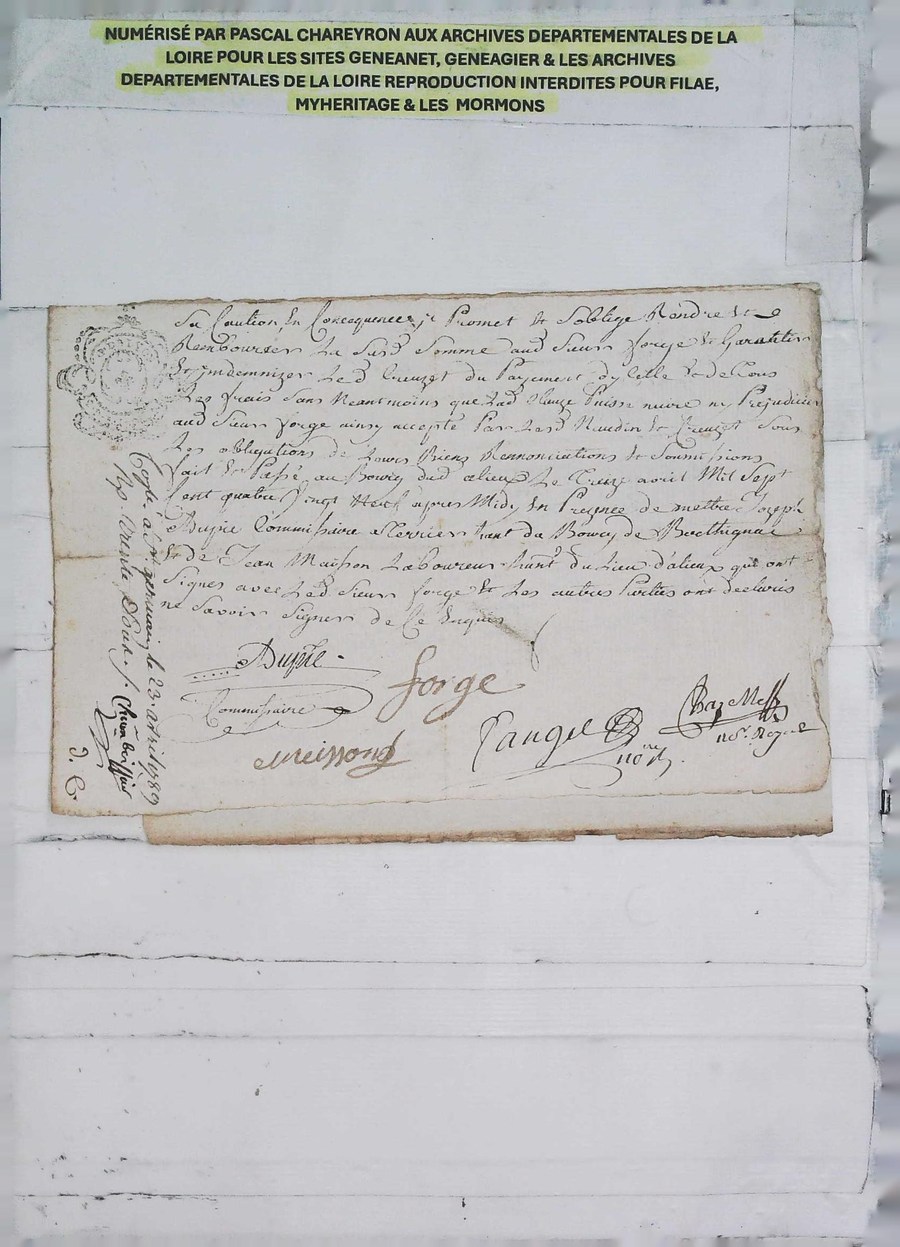 NUMÉRISÉ PAR PASCAL CHAREYRON AUX ARCHIVES DEPARTEMENTALES DE LA
LOIRE POUR LES SITES GENEANET, GENEAGIER & LES ARCHIVES
DEPARTEMENTALES DE LA LOIRE REPRODUCTION INTERDITES POUR FILAE,
MYHERITAGE & LES MORMONS
Sa Caution, En Concequence je Promet & Soblige Rendre &
Rembourser La Susd Somme aud Sieur forge & Garantir
& Indemnizer Led Creuzet du Payement dycelle & de tous
Les frais Sans Neantmoins que Lad Clauze Puisse nuire ny Prejudicier
aud Sieur forge ainsy accepté Par Lesd & Creuzet Sous
Les obligations de Leurs Biens Rennonciations & Soumissions
fait & Passé au Bourg dud alieux Le Treize avril Mil Sept
Cent quatre vingt Neuf apres Midy En Presence de mettre Joseph
Dupré Commissaire a Terrier hant du Bourg de
& de Jean Maisson Laboureur hant du Lieu d'alieux qui ont
Signes avec Led Sieur forge & Les autres Parties ont declaris
ne Savoir Signer de Ce Enquis
Dupré
Commissaire
forge
meissond
nore
not. Royal
Conlé a St germain le 23 avril 1789